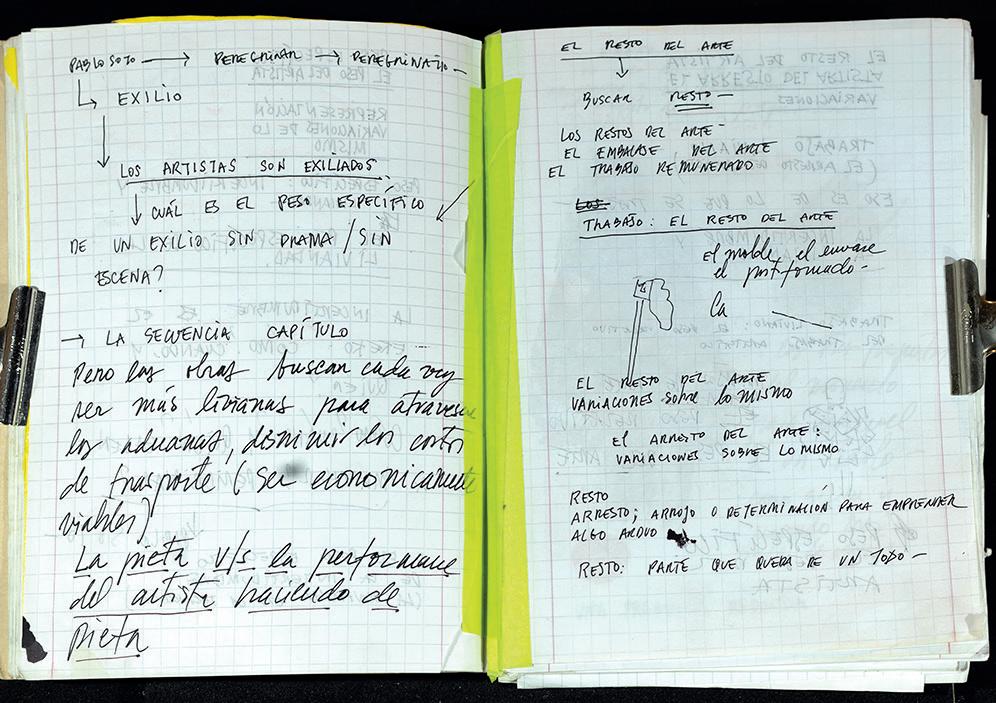 PABLO SOTO → PEREGRINAR → PEREGRINATIO –
↳ EXILIO
LOS ARTISTAS SON EXILIADOS.
↓ CUÁL ES EL PESO ESPECÍFICO
DE UN EXILIO SIN DRAMA / SIN
ESCENA?
→ LA SECUENCIA CAPÍTULO
Pero las obras buscan cada vez
ser más livianas para atravesar
las aduanas, disminuir los costos
de trasporte (ser económicamente
viables)
La pieta v/s la performance
del artista haciendo de
pieta
EL RESTO DEL ARTE
↓
BUSCAR RESTO –
LOS RESTOS DEL ARTE –
EL EMBALAJE, DEL ARTE
EL TRABAJO REMUNERADO
LOS
TRABAJO: EL RESTO DEL ARTE
el molde, el envase
el post-formado –
la
EL RESTO DEL ARTE
VARIACIONES SOBRE LO MISMO
El ARRESTO DEL ARTE:
VARIACIONES SOBRE LO MISMO
RESTO
ARRESTO; ARROJO O DETERMINACIÓN PARA EMPRENDER
ALGO ARDUO
RESTO: PARTE QUE QUEDA DE UN TODO –